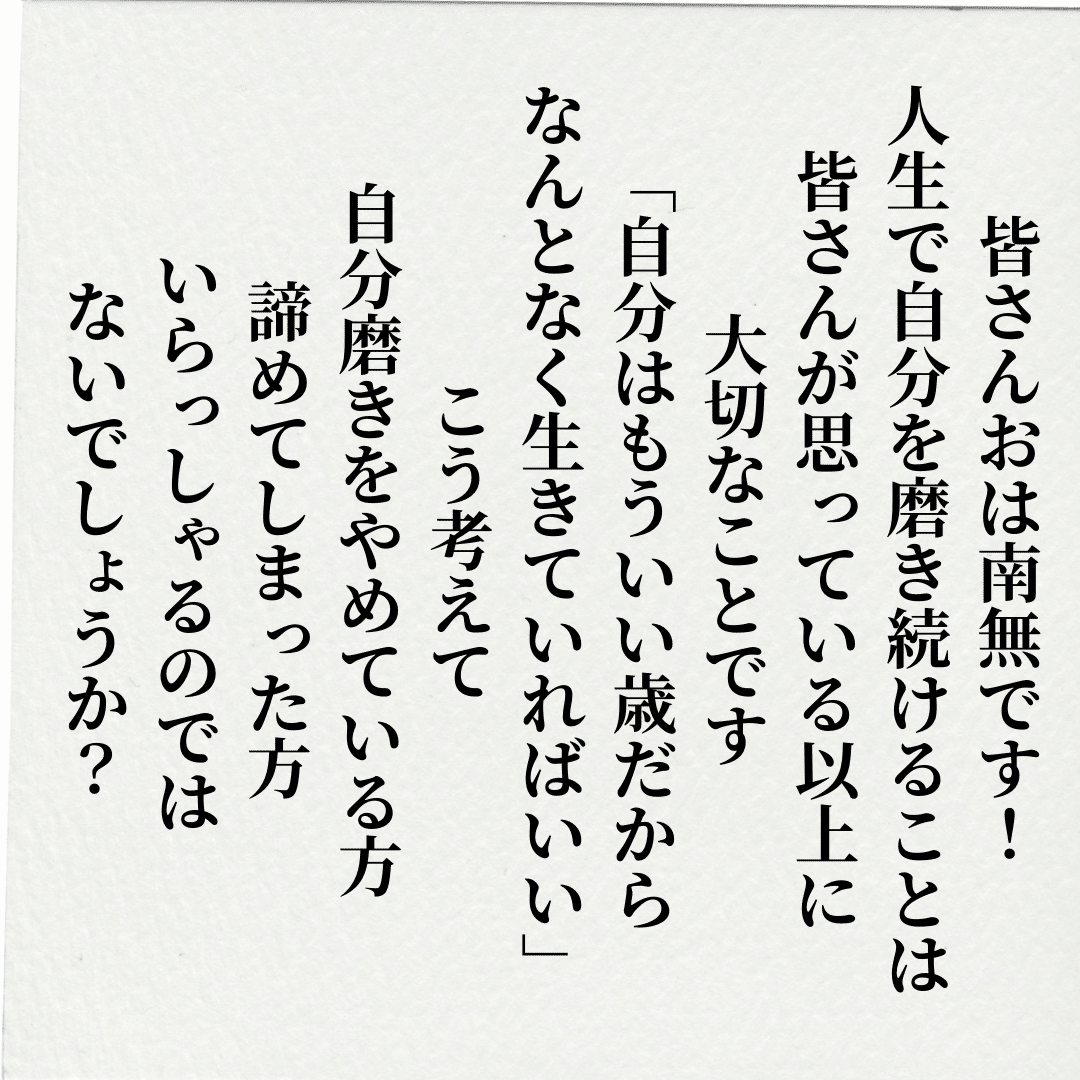 皆さんおは南無です！
人生で自分を磨き続けることは
皆さんが思っている以上に
大切なことです
「自分はもういい歳だから
なんとなく生きていればいい」
こう考えて
自分磨きをやめている方
諦めてしまった方
いらっしゃるのでは
ないでしょうか？